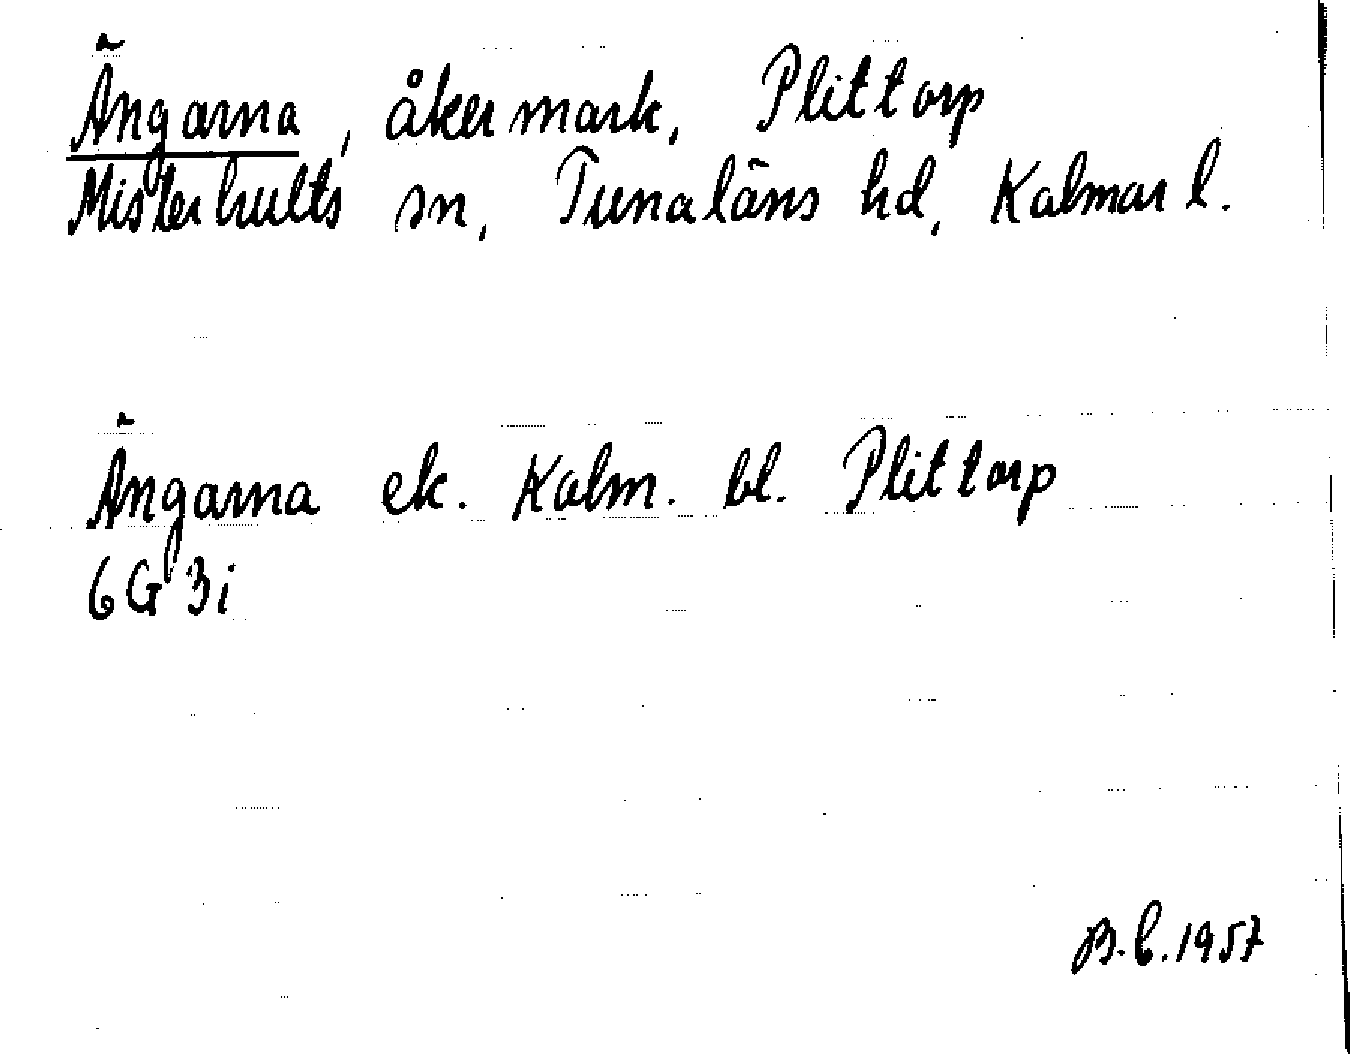 Ängarna, åkermark, Plittorp
Misterhults sn, Tunaläns hd, Kalmar l.
Ängarna ek. Kalm. bl. Plittorp
6G3i
B.L.1957